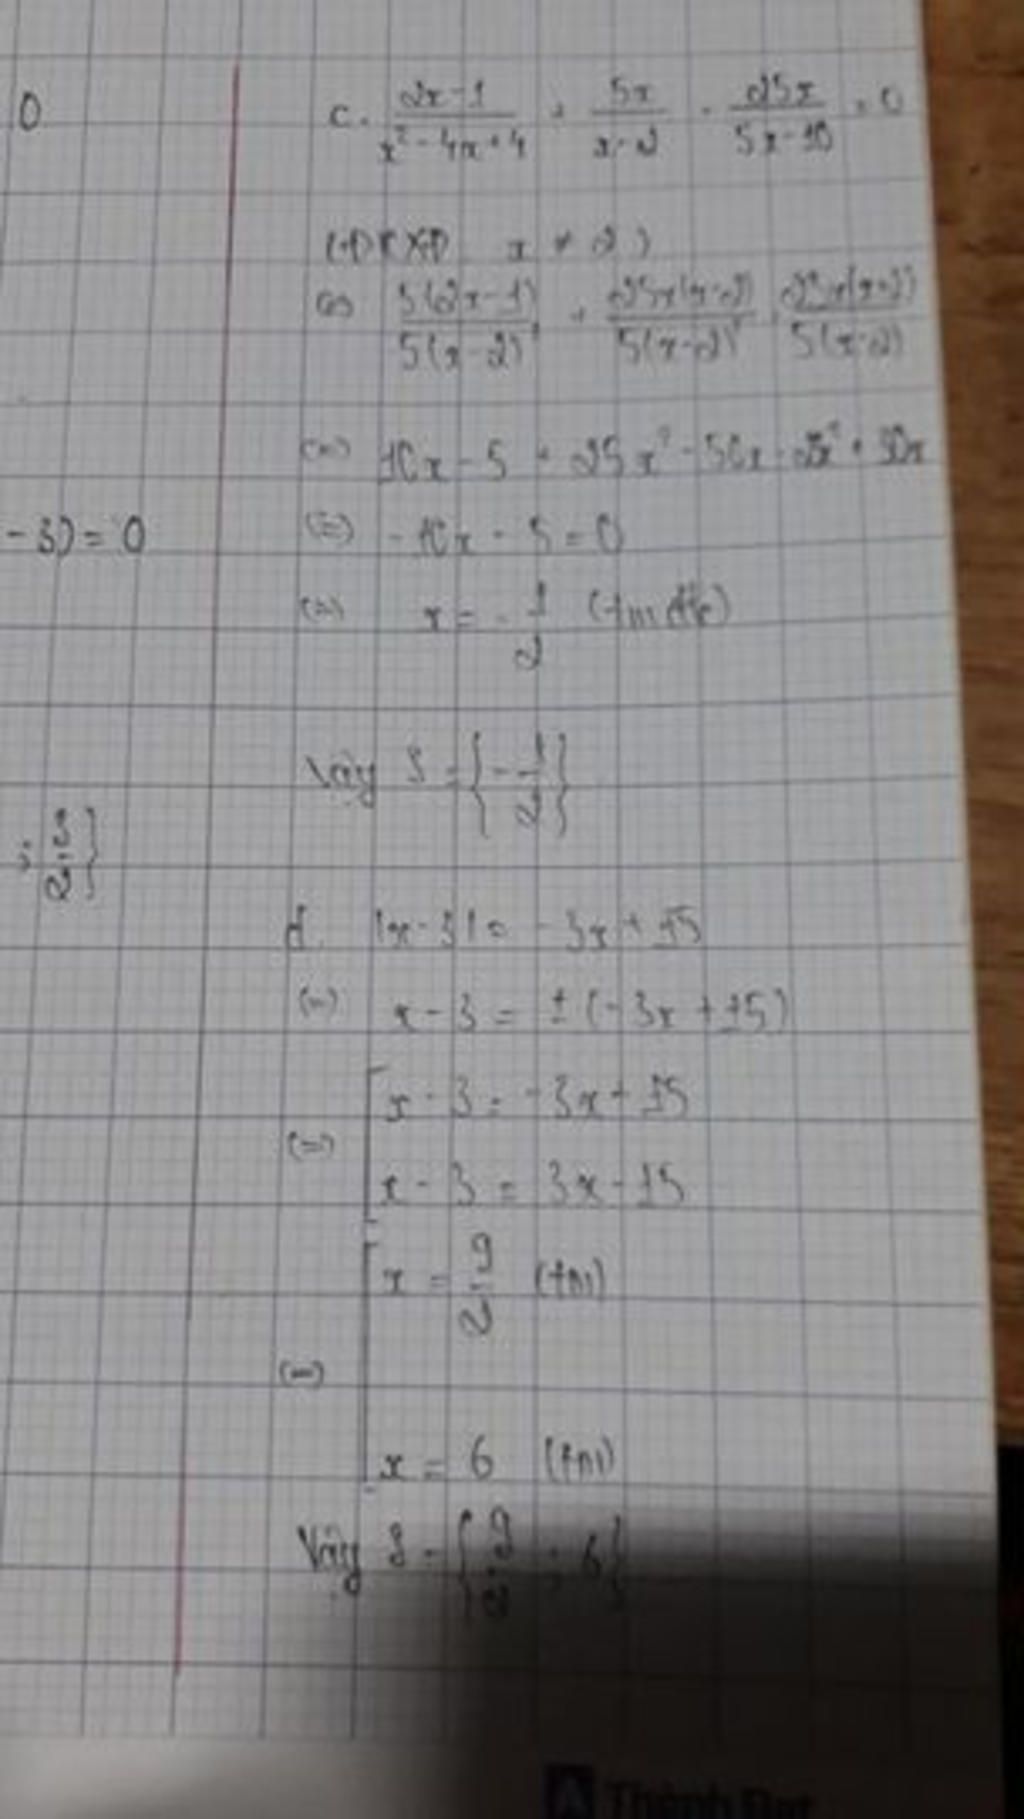 0
c. \frac{2x-1}{x^2-4x+4} + \frac{5x}{x-2} - \frac{25x}{5x-10} = 0
(ĐKXĐ x ≠ 2)
(=) \frac{5(2x-1)}{5(x-2)^2} + \frac{25x(x-2)}{5(x-2)^2} \frac{25x(x-2)}{5(x-2)}
(=) 10x - 5 + 25x^2 - 50x - 25x^2 +
- 3) = 0
(=) -10x - 5 = 0
(=) x = -\frac{1}{2} (tmđk)
Vậy S = {-\frac{1}{2}}
; \frac{3}{2}}
d. |x-3| = -3x + 15
(=) x - 3 = ± (-3x + 15)
(=) [ x - 3 = -3x + 15
x - 3 = 3x - 15
(=) [ x = \frac{9}{2} (tm)
x = 6 (tm)
Vậy S = {\frac{9}{2}; 6}
Thành Đạt